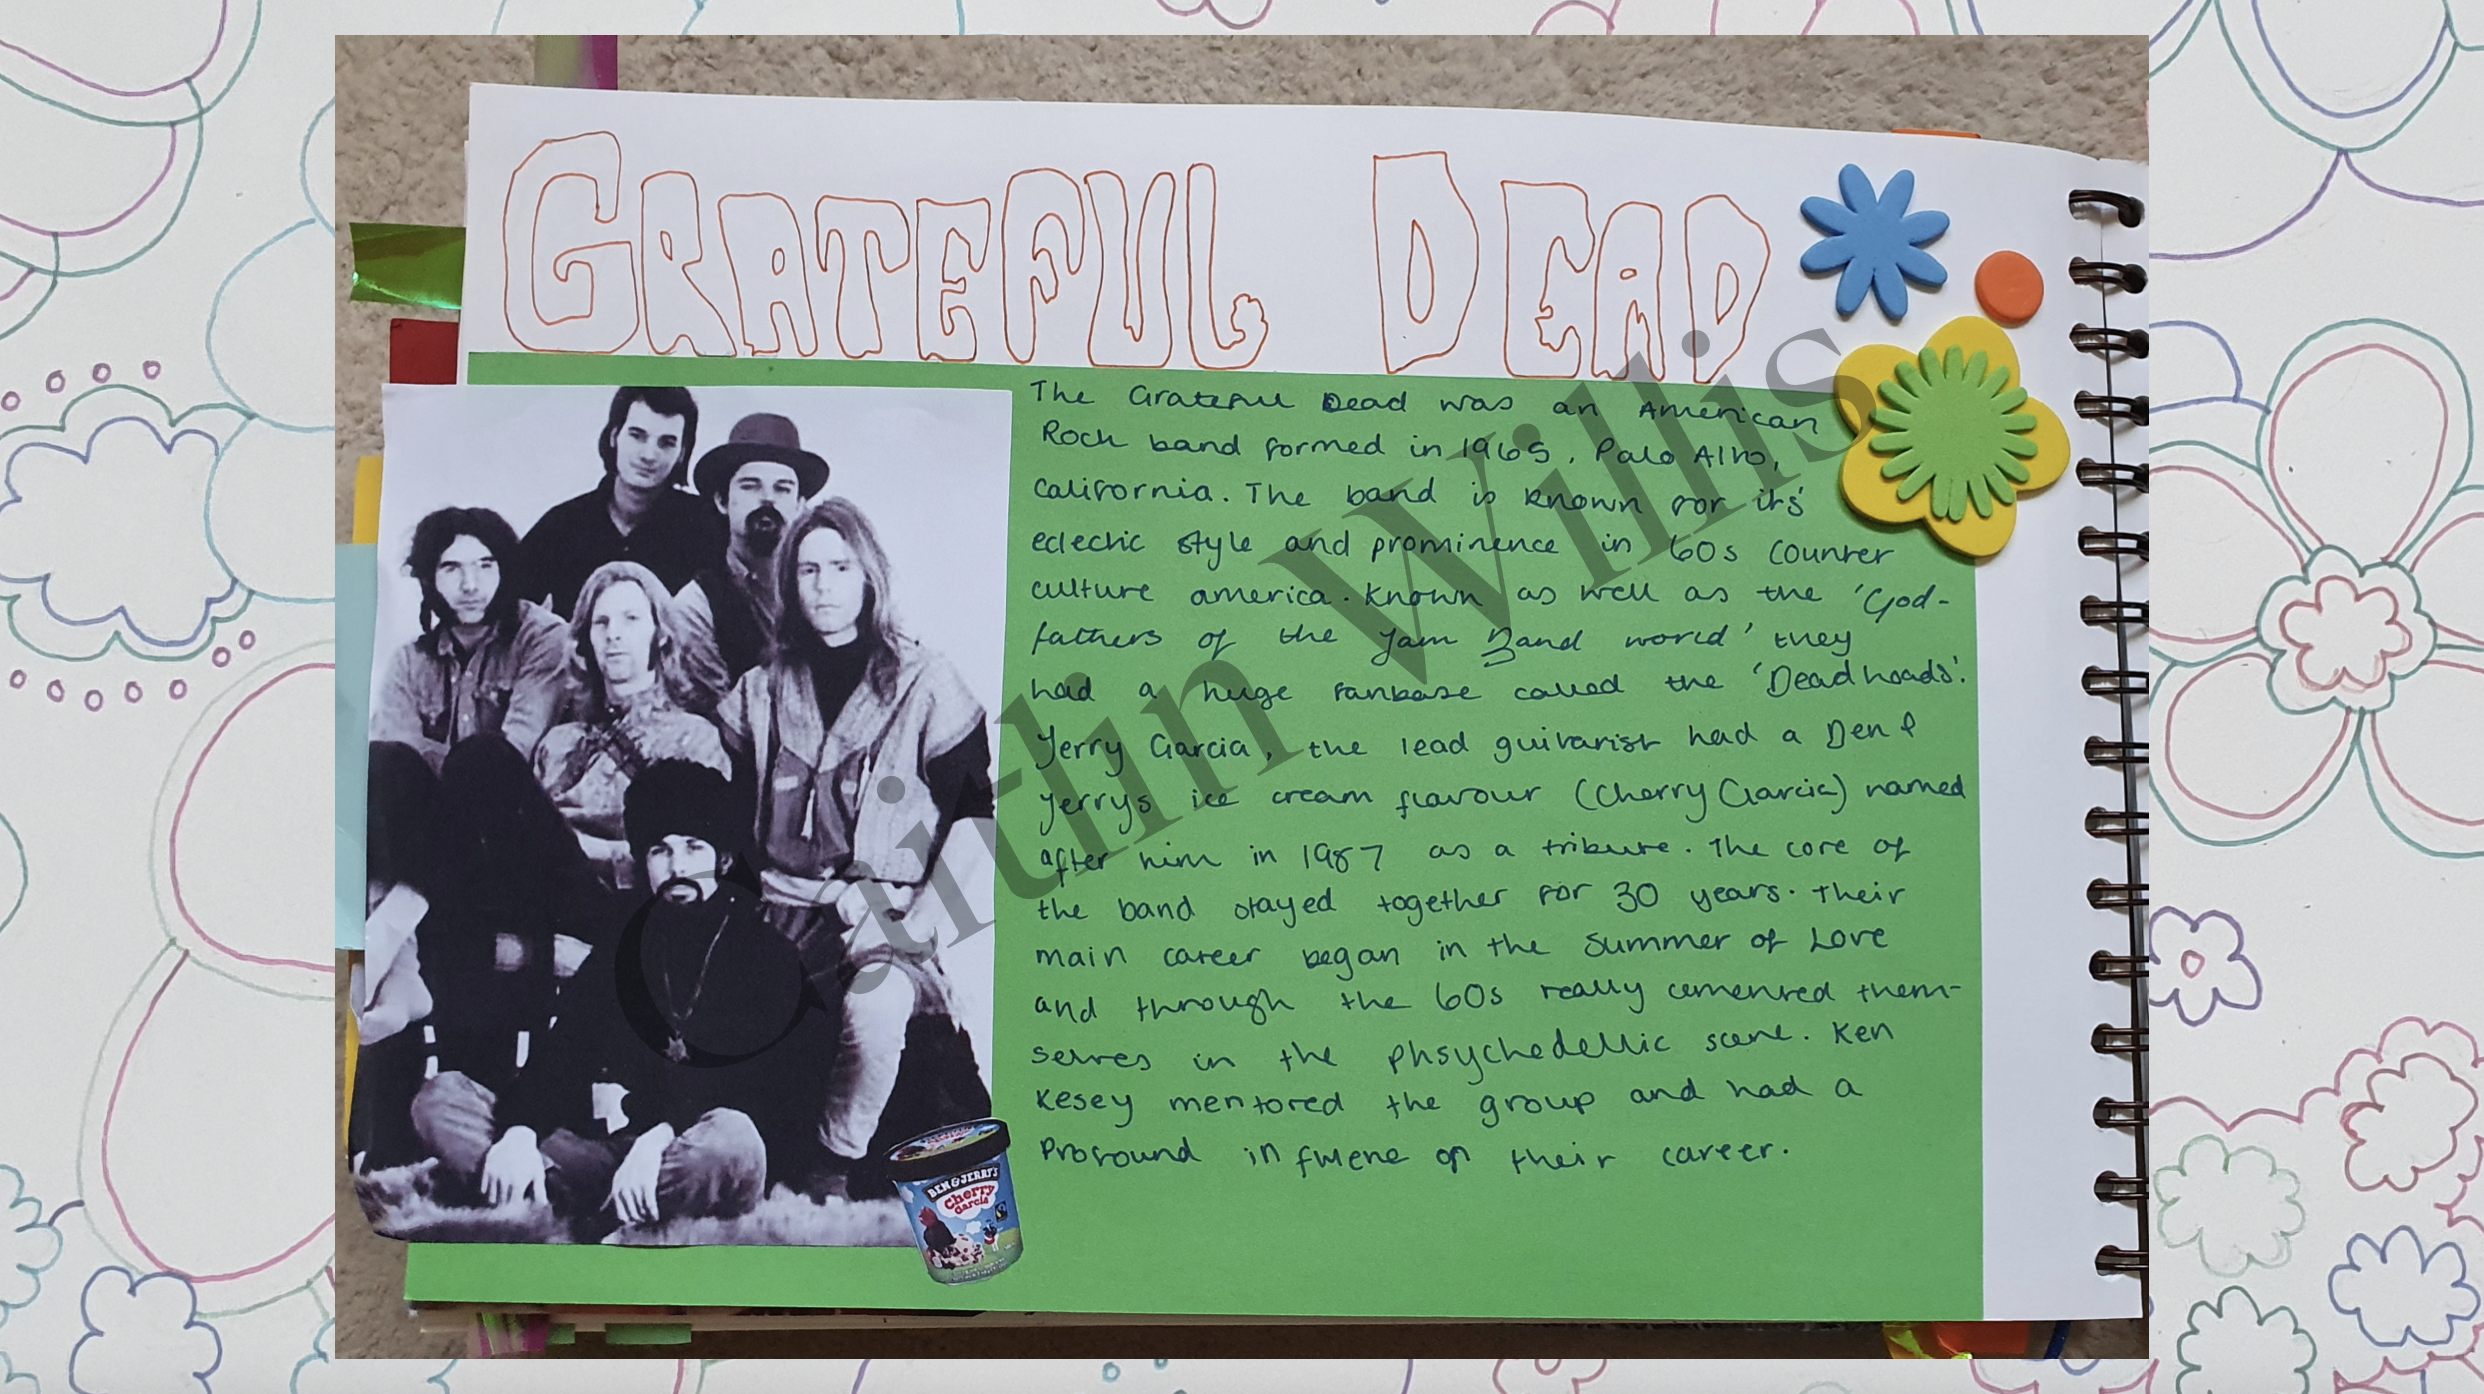 GRATEFUL DEAD
The Grateful Dead was an American
Rock band formed in 1965, Palo Alto,
California. The band is known for its'
eclectic style and prominence in 60s counter
culture america. Known as well as the 'God-
fathers of the Jam Band world' they
had a huge fanbase called the 'Deadheads'.
Jerry Garcia, the lead guitarist had a Ben &
Jerrys ice cream flavour (Cherry Garcia) named
after him in 1987 as a tribute. The core of
the band stayed together for 30 years. Their
main career began in the Summer of Love
and through the 60s really cemented them-
selves in the phsychedellic scene. Ken
Kesey mentored the group and had a
Profound influence on their career.
BEN & JERRY'S
Cherry
Garcia
Caitlin Willis